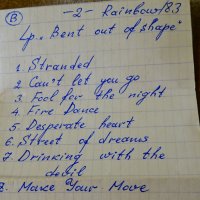 B -2- Rainbow/83
Lp. "Bent out of shape"
1. Stranded
2. Can't let you go
3. Fool for the night
4. Fire Dance
5. Desperate heart
6. Street of dreams
7. Drinking with the
devil
8. Make Your Move